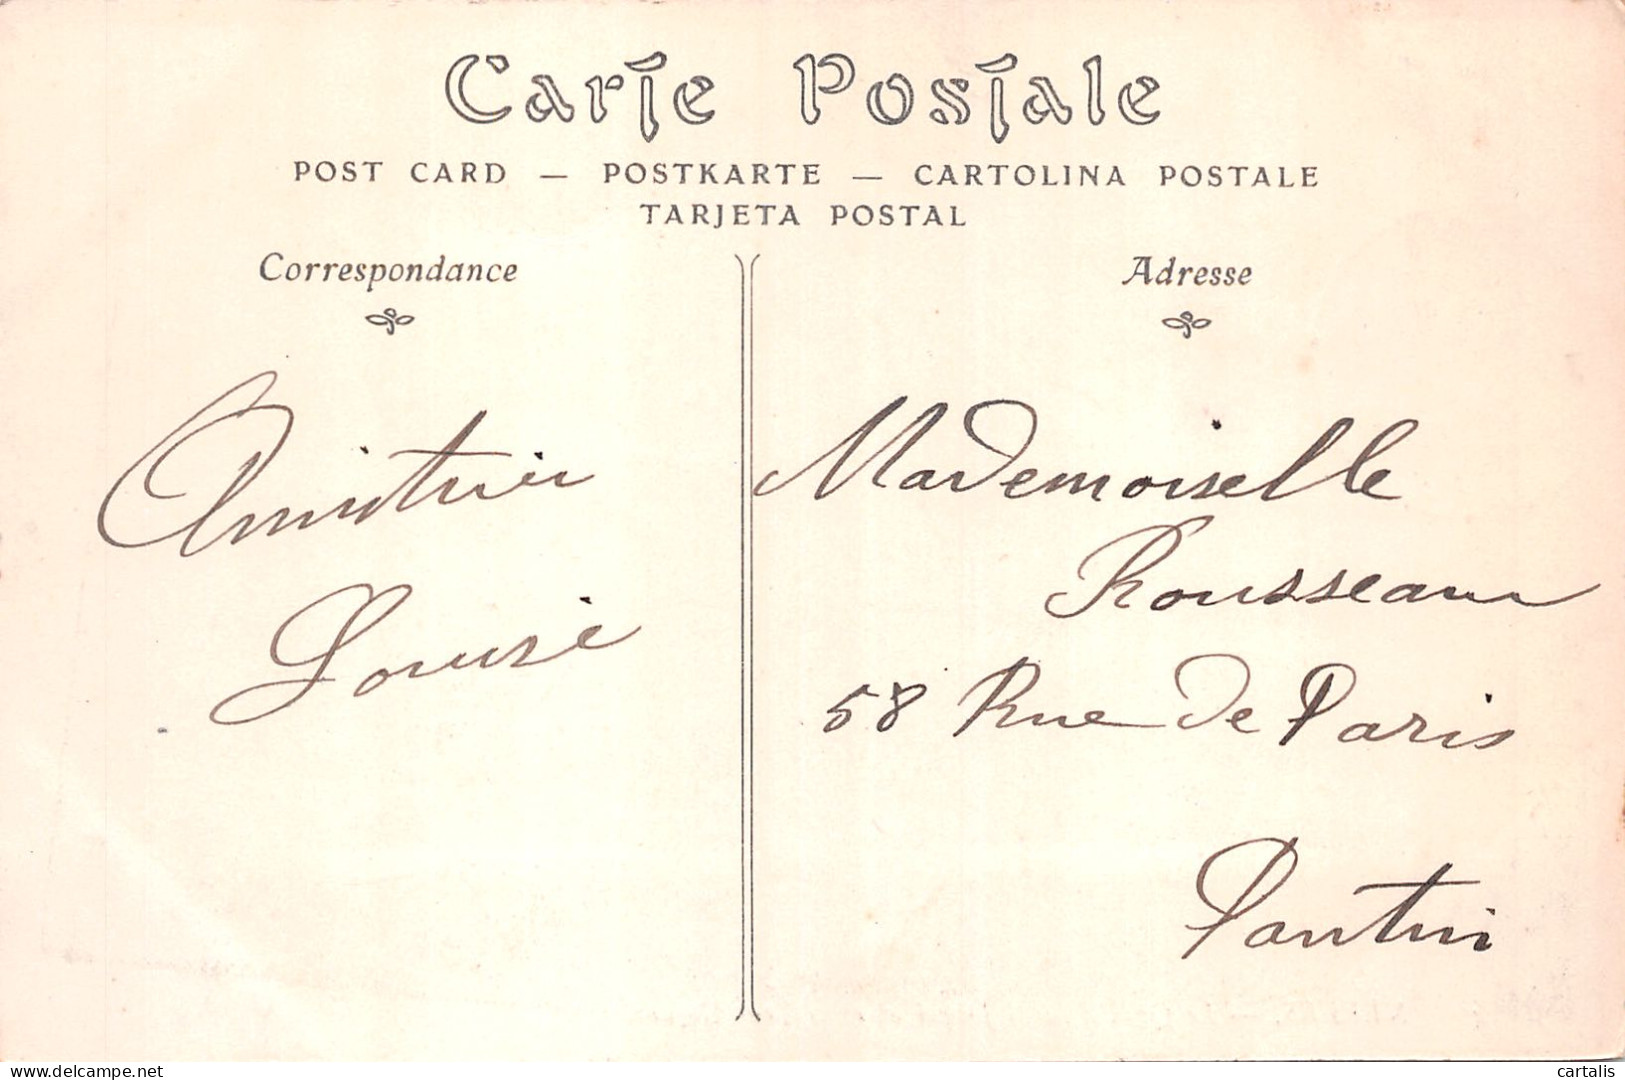 Carte Postale
POST CARD — POSTKARTE — CARTOLINA POSTALE
TARJETA POSTAL
Correspondance
Amitrié
Louise
Adresse
Mademoiselle
Rousseau
58 Rue de Paris
Pantin
delcampe.net
cartalis